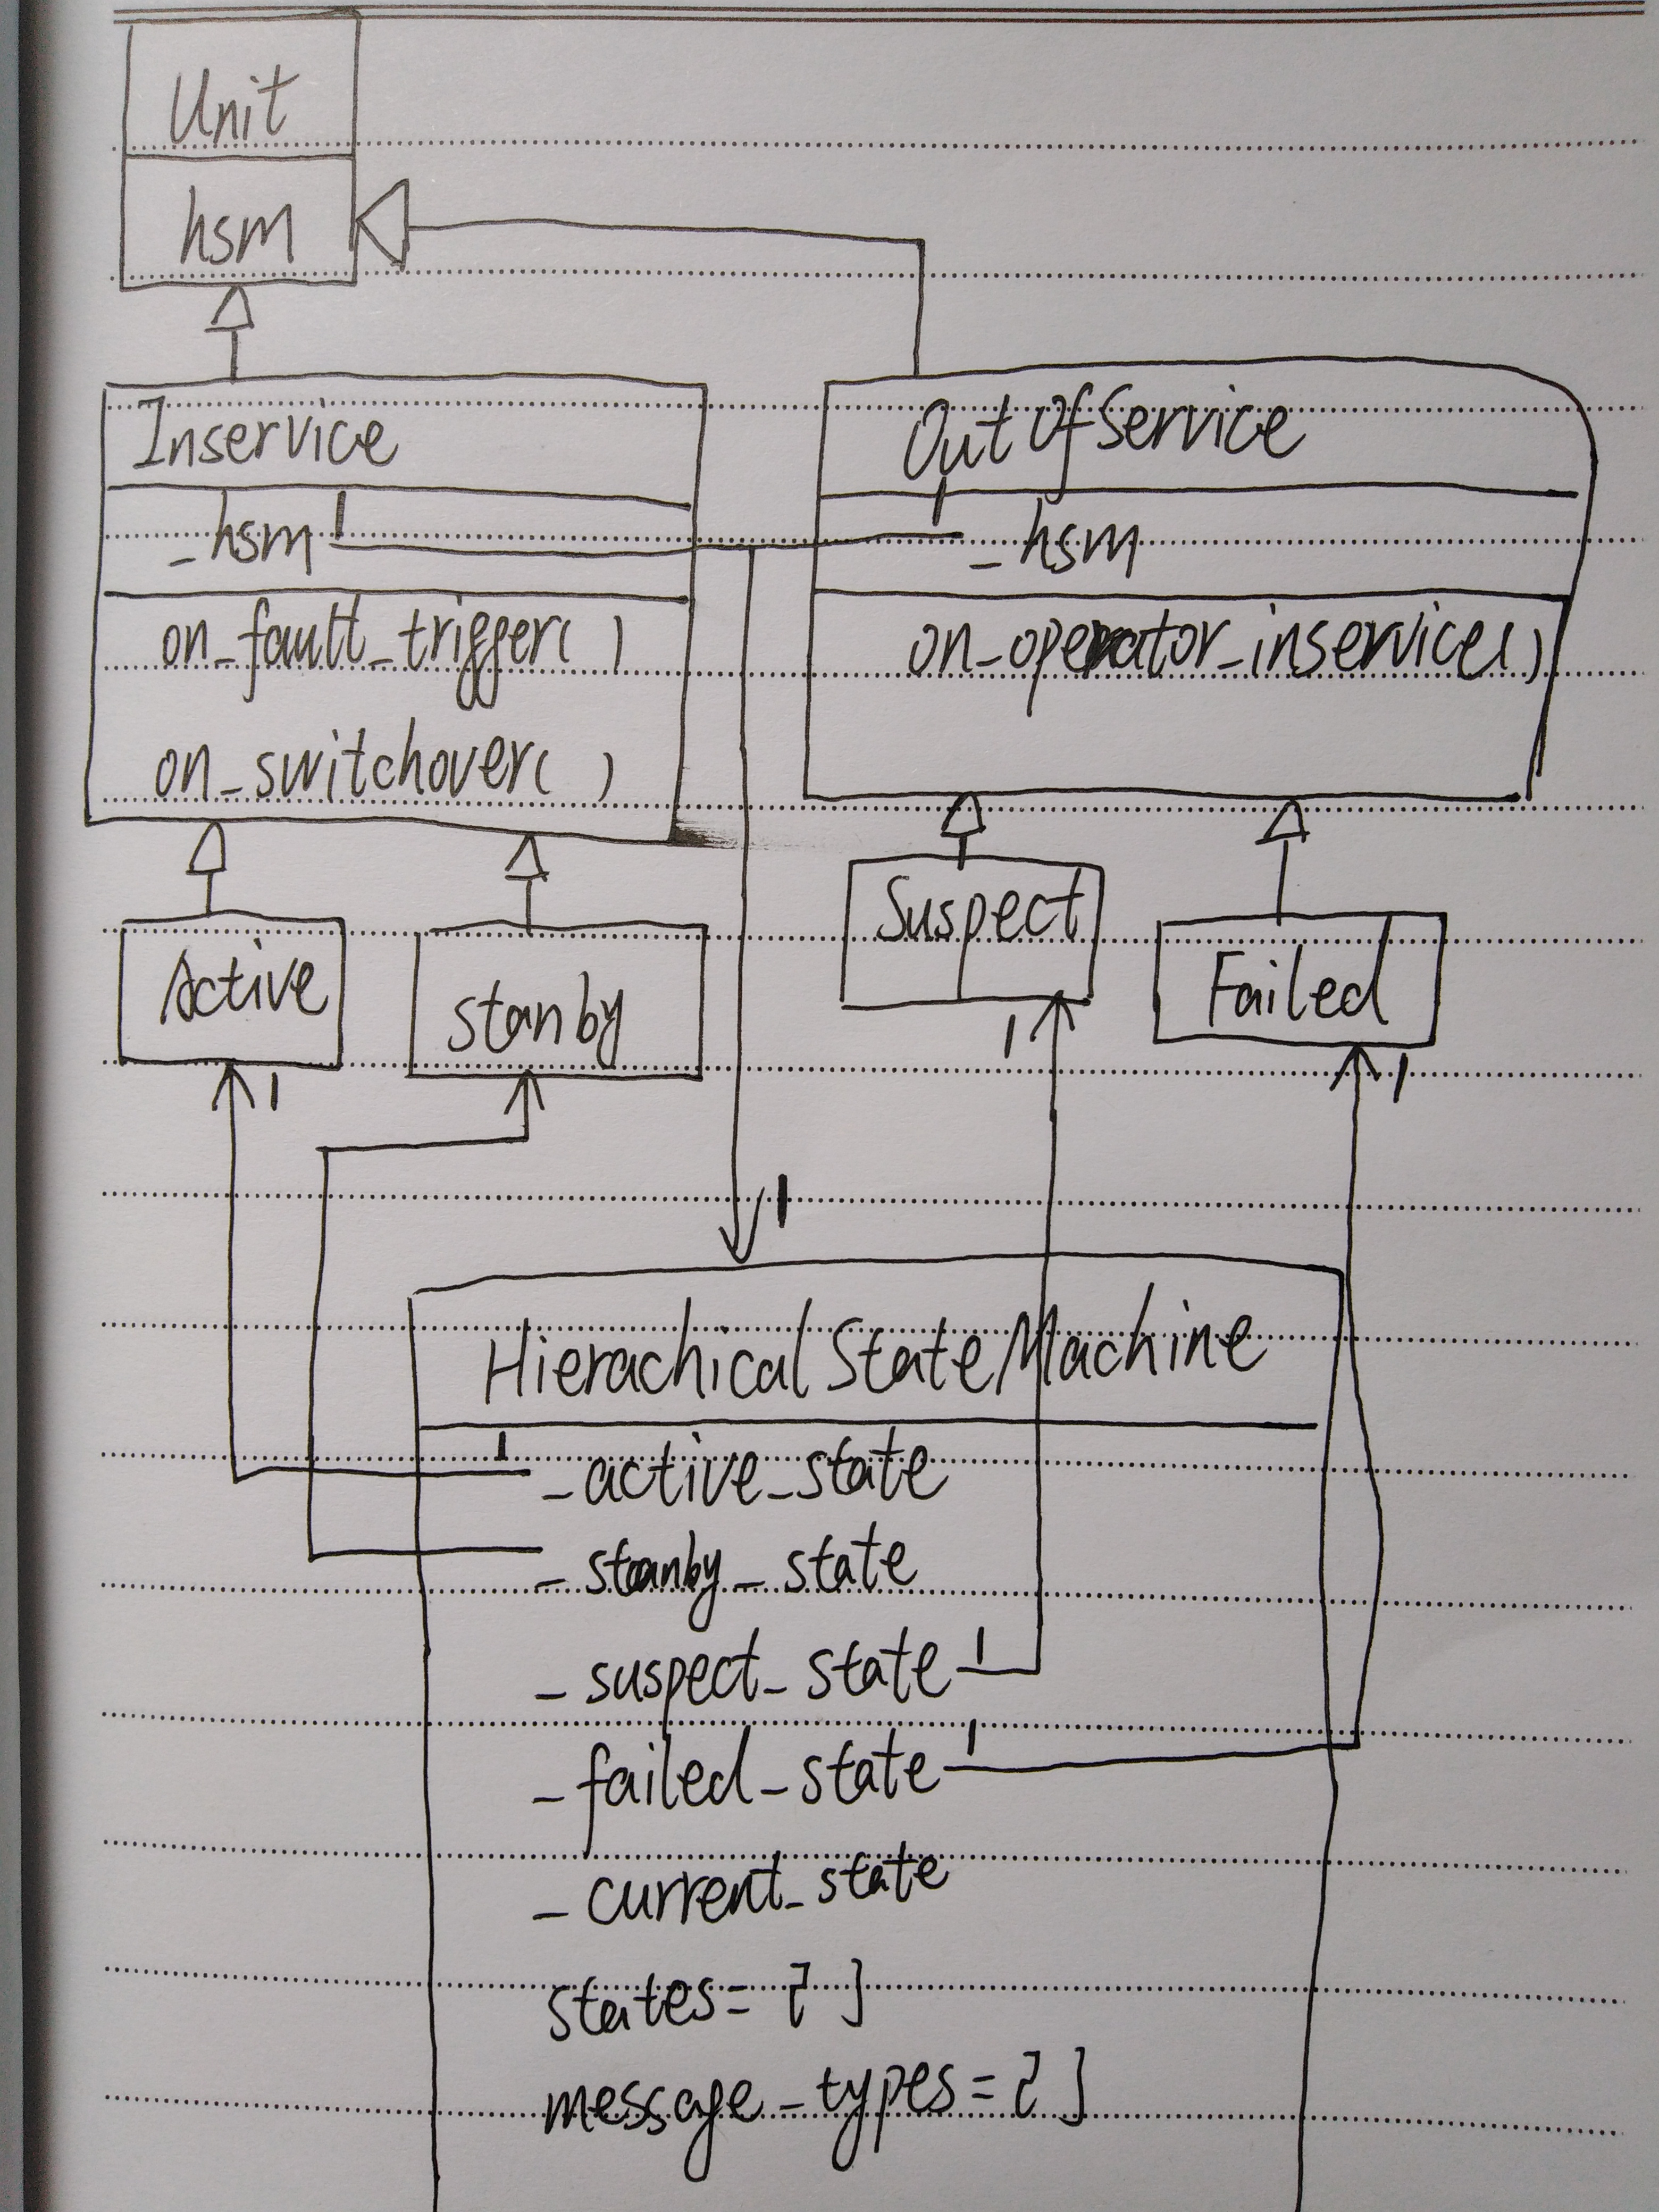 Unit
hsm
Inservice
_hsm 1
on_fault_trigger( )
on_switchover( )
OutOfService
1 _hsm
on_operator_inservice()
Active
stanby
Suspect
Failed
1
1
1
1
HierachicalStateMachine
1 _active_state
_stanby_state
_suspect_state 1
_failed_state 1
_current_state
states = [ ]
message_types = [ ]